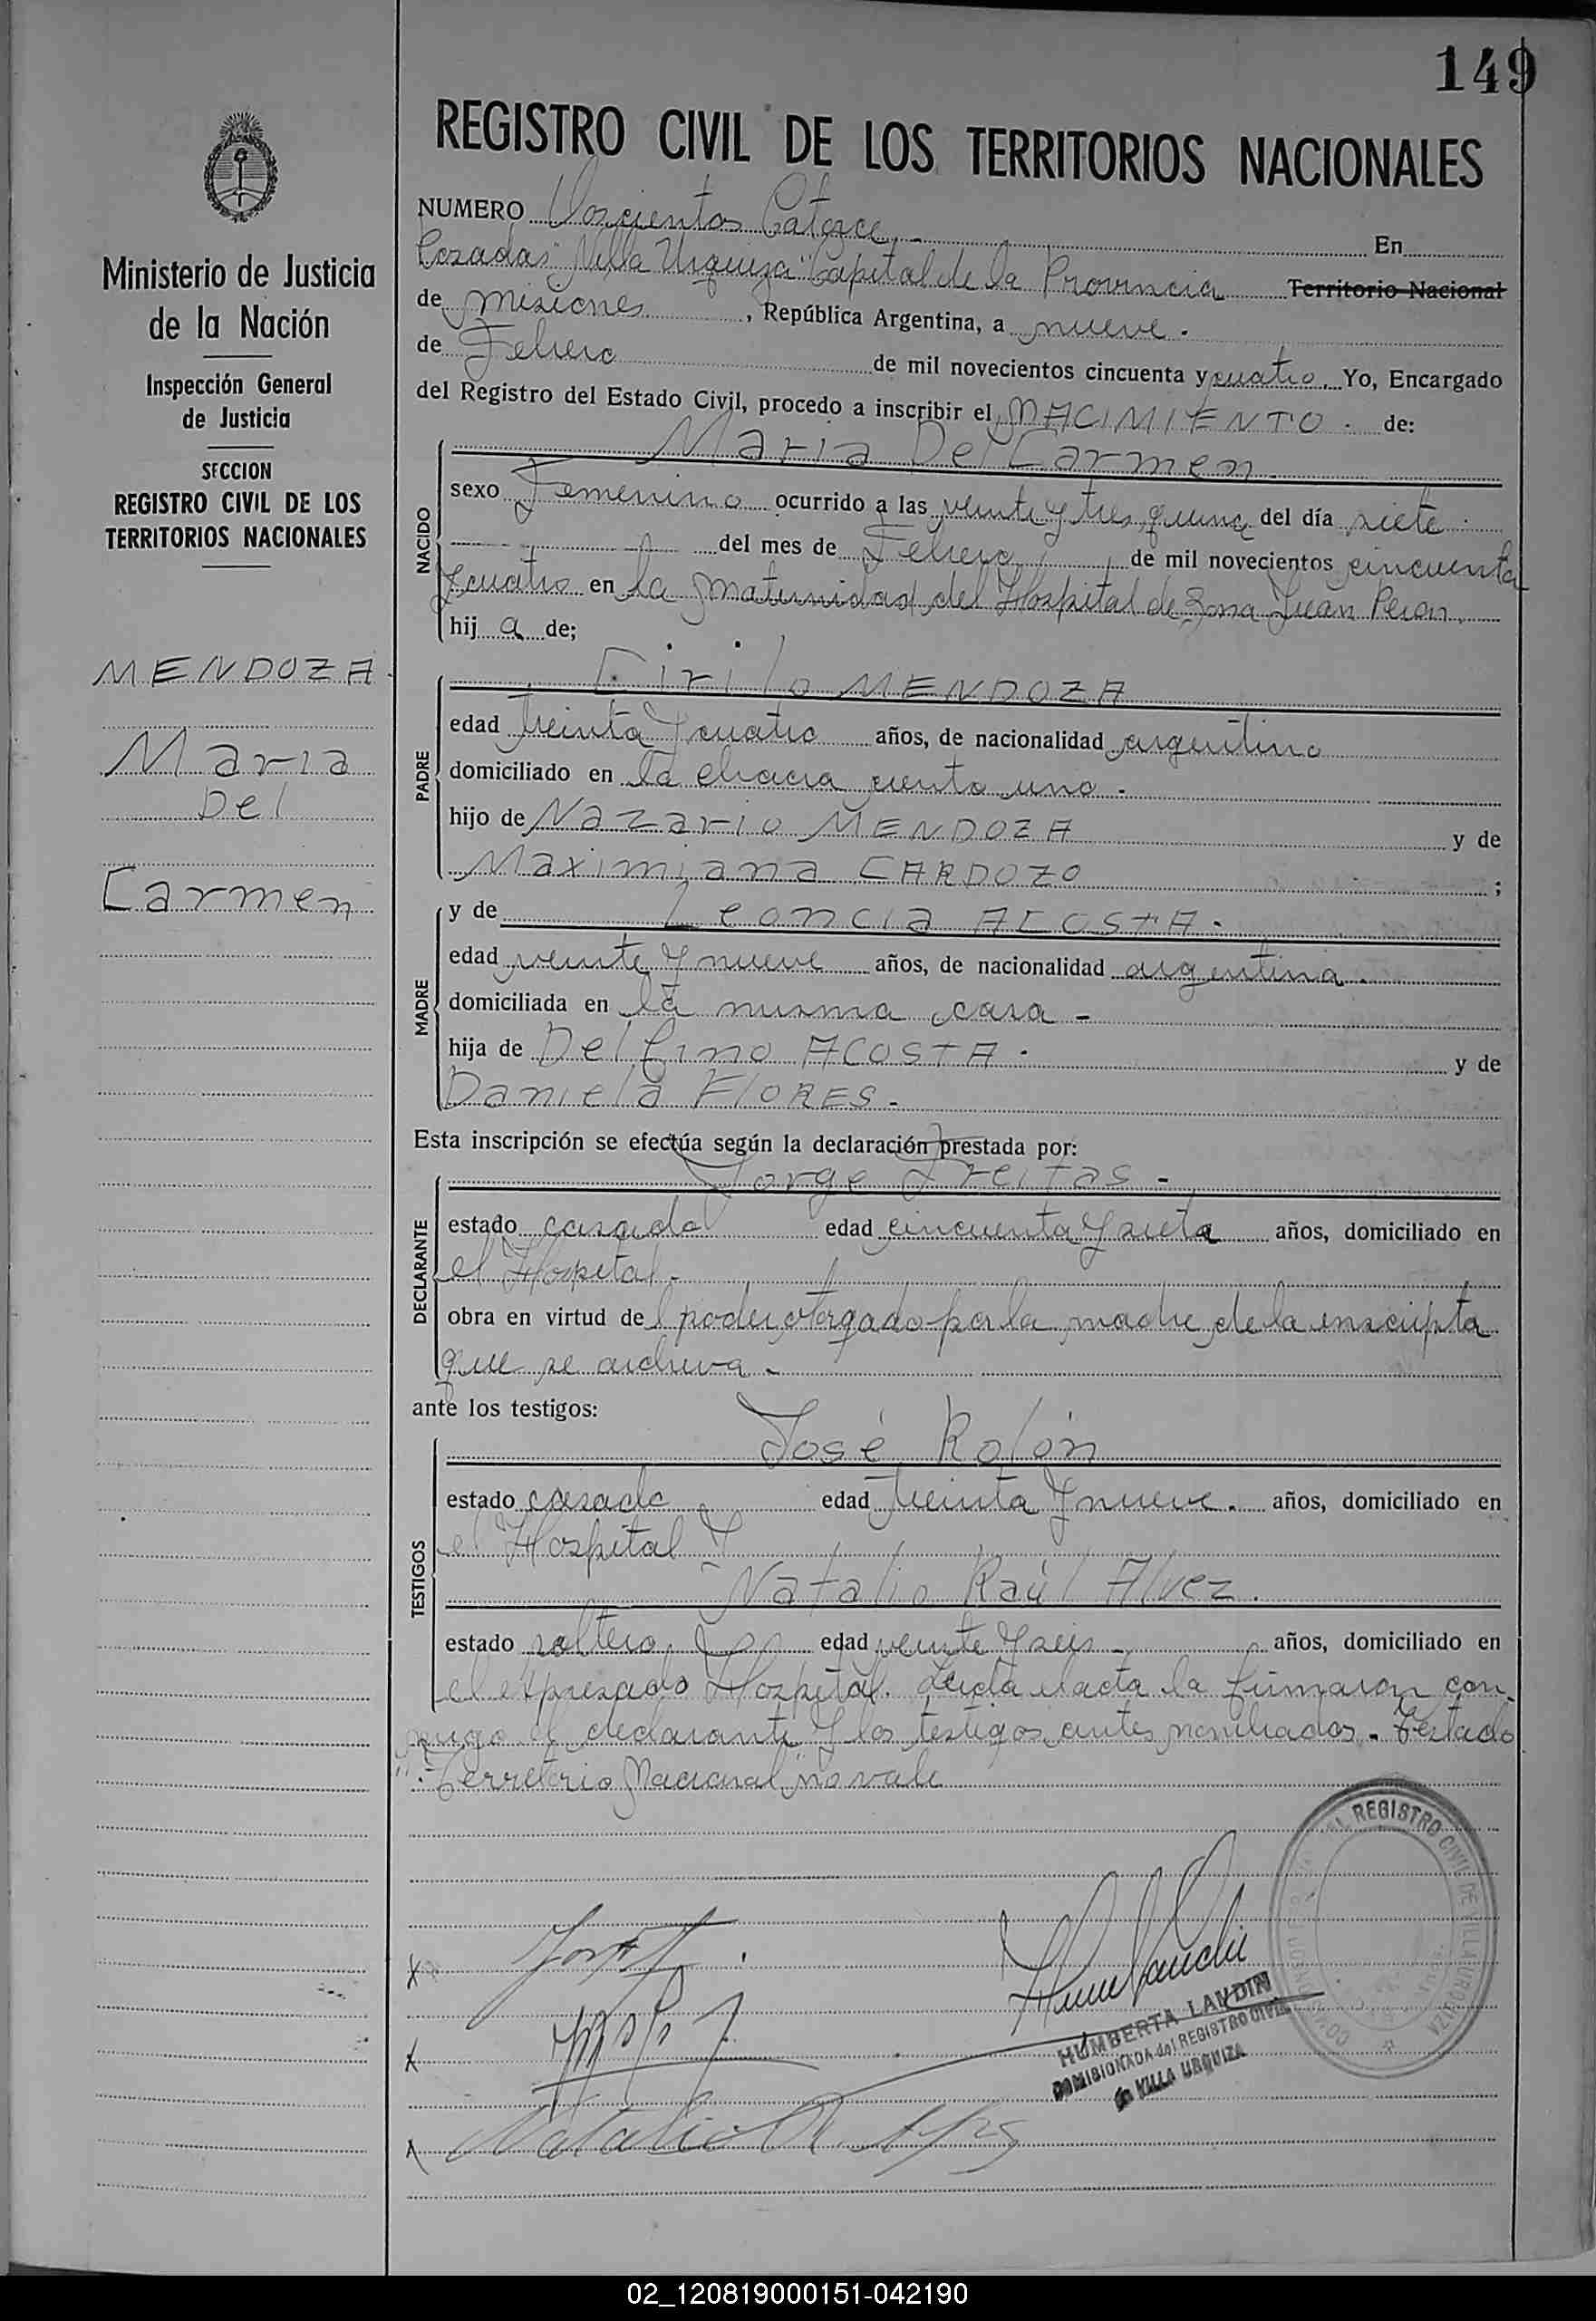 149
REGISTRO CIVIL DE LOS TERRITORIOS NACIONALES
Ministerio de Justicia
de la Nación
Inspección General
de Justicia
SECCION
REGISTRO CIVIL DE LOS
TERRITORIOS NACIONALES
MENDOZA
Maria
Del
Carmen
NUMERO Doscientos Catorce.- En
Posadas "Villa Urquiza" Capital de la Provincia Territorio Nacional
de Misiones, República Argentina, a nueve.
de Febrero de mil novecientos cincuenta y cuatro. Yo, Encargado
del Registro del Estado Civil, procedo a inscribir el NACIMIENTO. de:
NACIDO
Maria Del Carmen
sexo Femenino ocurrido a las veinte y tres quince del día siete.
del mes de Febrero de mil novecientos cincuenta
y cuatro en la Maternidad del Hospital de Zona Juan Peron.
hij a de;
PADRE
Cirilo MENDOZA
edad treinta y cuatro años, de nacionalidad argentino
domiciliado en la chacra ciento uno.
hijo de Nazario MENDOZA y de
Maximiana CARDOZO ;
MADRE
y de Leoncia ACOSTA.
edad veinte y nueve años, de nacionalidad argentina.
domiciliada en la misma casa -
hija de Delfino ACOSTA. y de
Daniela FLORES.-
Esta inscripción se efectúa según la declaración prestada por:
DECLARANTE
Jorge Freitas -
estado casado edad cincuenta y siete años, domiciliado en
el Hospital.-
obra en virtud del poder otorgado por la madre de la inscripta
que se archiva.-
ante los testigos:
TESTIGOS
José Rolón
estado casado edad treinta y nueve. años, domiciliado en
el Hospital y
Natalio Raúl Alvez.
estado soltero edad veinte y seis - años, domiciliado en
el expresado Hospital. Leida el acta la firmaron con-
migo el declarante y los testigos antes nombrados. Testado
": Territorio Nacional" no vale
HUMBERTA LANDIN
COMISIONADA del REGISTRO CIVIL
de VILLA URQUIZA
EL REGISTRO CIVIL DE VILLA URQUIZA
02_120819000151-042190